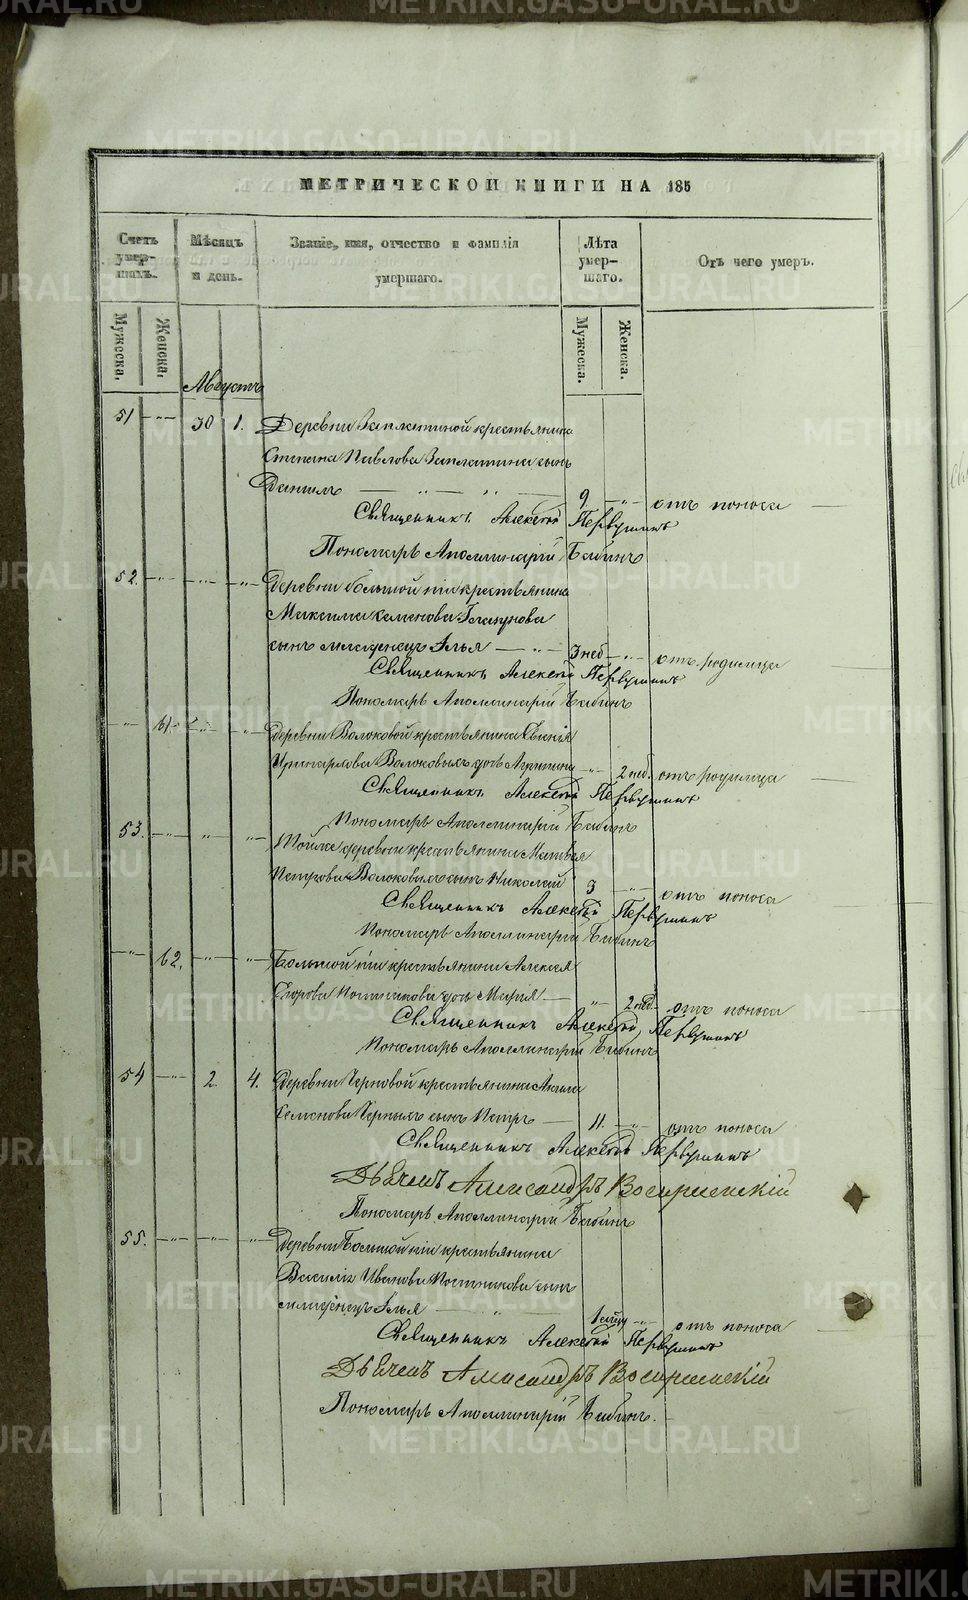 METRIKI.GASO-URAL.RU
МЕТРИЧЕСКОЙ КНИГИ НА 185
Счетъ умер-шихъ.
Мѣсяцъ и день.
Званіе, имя, отчество и фамилія умершаго.
Лѣта умер-шаго.
Отъ чего умеръ.
Мужеска. Женска.
Мужеска. Женска.
Августъ
51 —"— 30 1. Деревни Заплатиной крестьянина
Степана Павлова Заплатина сынъ
Даніилъ — " — " — 9 —"— отъ поноса
Священникъ Алексѣй Первушинъ
Пономарь Аполлинарій Бабинъ
52. —"— —"— —"— Деревни Большой крестьянина
Максима Семенова Глазунова
сынъ младенецъ Илья — " — 3 нед —"— отъ родимца
Священникъ Алексѣй Первушинъ
Пономарь Аполлинарій Бабинъ
—"— 61. —"— —"— Деревни Волоковой крестьянина
Волоковыхъ дочь —"— 2 нед. отъ родимца
Священникъ Алексѣй Первушинъ
Пономарь Аполлинарій Бабинъ
53. —"— " —"— Тойже деревни крестьянина Матвея
Петрова Волоковыхъ сынъ Николай 3 —"— отъ поноса
Священникъ Алексѣй Первушинъ
Пономарь Аполлинарій Бабинъ
—"— 62. —"— —"— Большой крестьянина Алексея
Егорова Постникова дочь Марія — " 2 нед. отъ поноса
Священникъ Алексѣй Первушинъ
Пономарь Аполлинарій Бабинъ
54 —"— 2. 4. Деревни Черновой крестьянина
Семенова Черныхъ сынъ Петръ — 11. —"— отъ поноса
Священникъ Алексѣй Первушинъ
Дьячекъ Александръ Воскресенскій
Пономарь Аполлинарій Бабинъ
55. —"— —"— —"— Деревни Большой крестьянина
Василія Иванова Постникова сынъ
младенецъ Илья — " — 1 —"— отъ поноса
Священникъ Алексѣй Первушинъ
Дьячекъ Александръ Воскресенскій
Пономарь Аполлинарій Бабинъ.